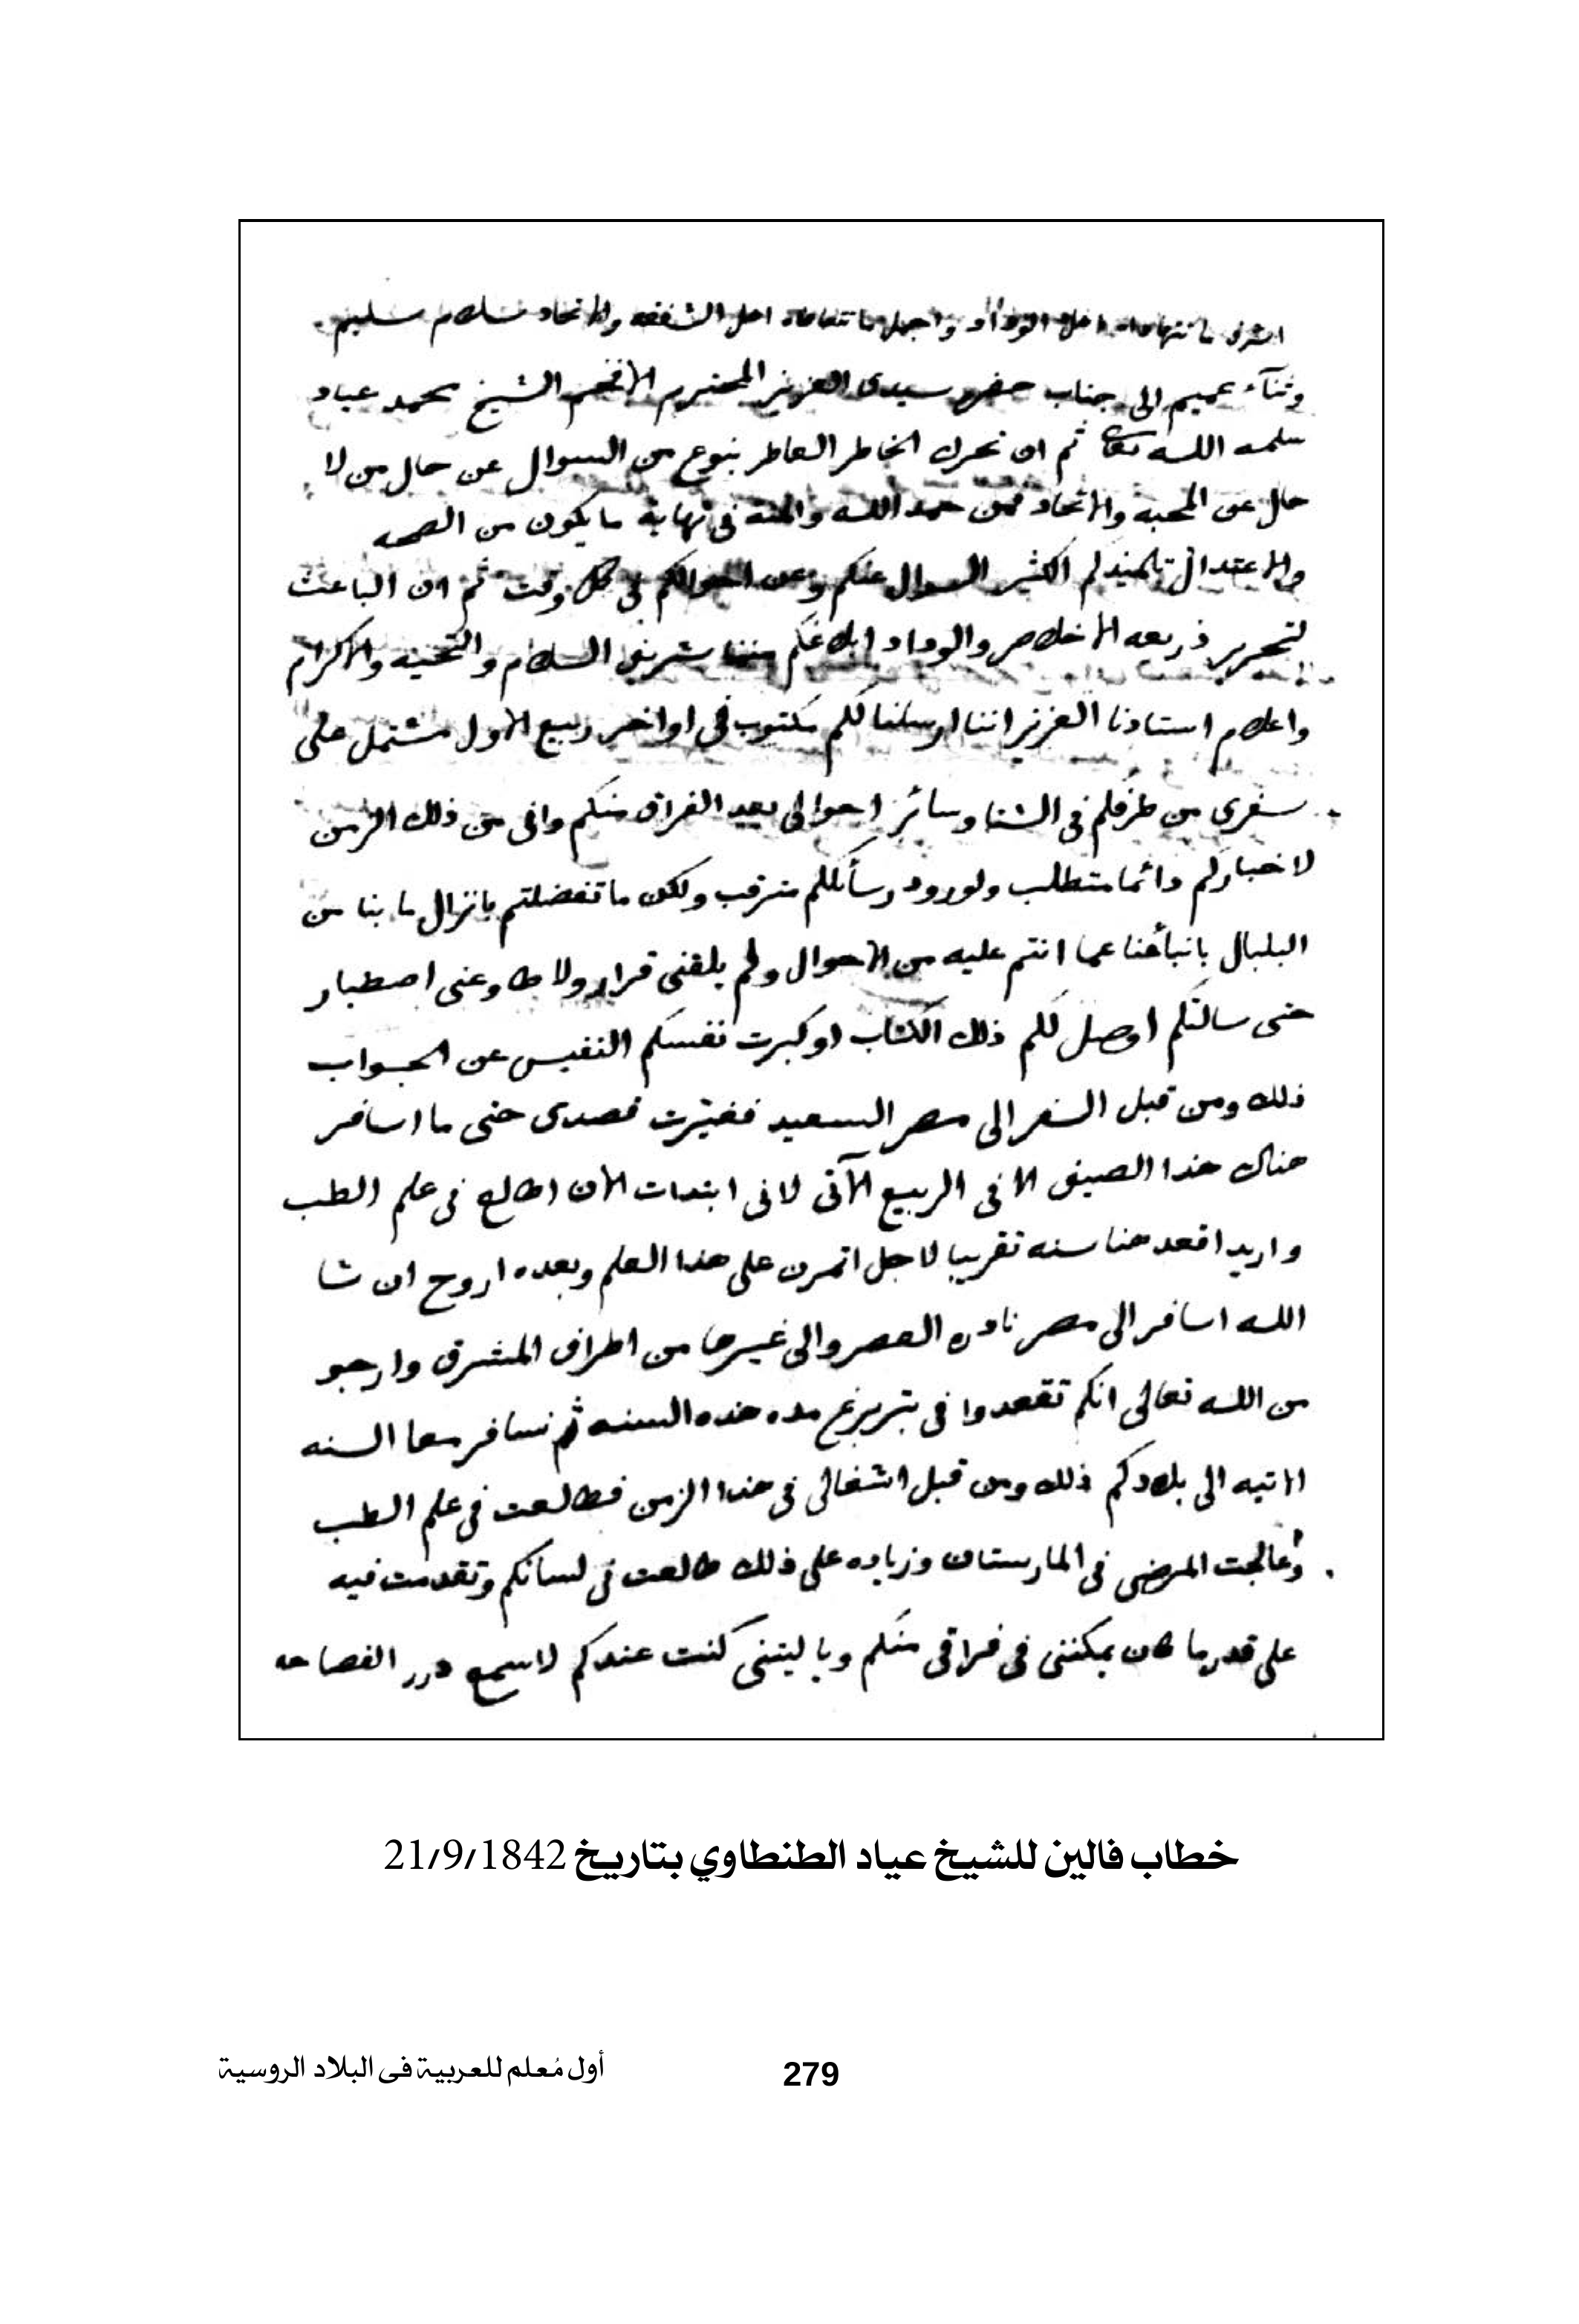 اشرف ما تتهاداه اهل الوداد واجمل ما تتعاطاه اهل الشفقه والاتحاد سلام سليم
وثنآء عميم الى جناب حضره سيدى العزيز المحترم الافخم الشيخ محمد عياد
سلمه الله تعالى ثم ان تحرك الخاطر العاطر بنوع من السوال عن حال من لا
حال عن المحبه والاتحاد فمن حمد الله والمنه فى نهاية ما يكون من الصحه
والاعتدال تلميذكم الكثير السوال عنكم وعن احوالكم فى كل وقت ثم ان الباعث
لتحرير ذريعه الاخلاص والوداد ابلاغكم منا شريف السلام والتحيه والاكرام
واعلام استاذنا العزيز اننا ارسلنا لكم مكتوب فى اواخر ربيع الاول مشتمل على
سفرى من طرفكم فى الشتا وسائر احوالى بعد الفراق منكم وانى من ذلك الزمن
لاخباركم دائما متطلب ولورود رسائلكم مترقب ولكن ما تفضلتم بانزال ما بنا من
البلبال بانبأنا عما انتم عليه من الاحوال ولم يلقنى قرار ولا طاوعنى اصطبار
حتى سالتكم اوصل لكم ذلك الكتاب او كبرت نفسكم النفيس عن الجواب
ذلك ومن قبل السفر الى مصر السعيد فغيّرت قصدى حتى ما اسافر
هناك هذا الصيف الا فى الربيع الآتى لانى ابتدات الان اطالع فى علم الطب
واريد اقعد هنا سنه تقريبا لاجل اتمرن على هذا العلم وبعده اروح ان شا
الله اسافر الى مصر نادره العصر والى غيرها من اطراف المشرق وارجو
من الله تعالى انكم تقعدوا فى بتربرغ مده هذه السنه ثم نسافر معا السنه
الاتيه الى بلادكم ذلك ومن قبل اشغالى فى هذا الزمن فطالعت فى علم الطب
وعالجت المرضى فى المارستان وزياده على ذلك طالعت فى لسانكم وتقدمت فيه
على قدر ما كان يمكننى فى فراقى منكم ويا ليتنى كنت عندكم لاسمع درر الفصاحه
خطاب فالين للشيخ عياد الطنطاوي بتاريخ 21/9/1842
279 أول مُعلم للعربية فى البلاد الروسية